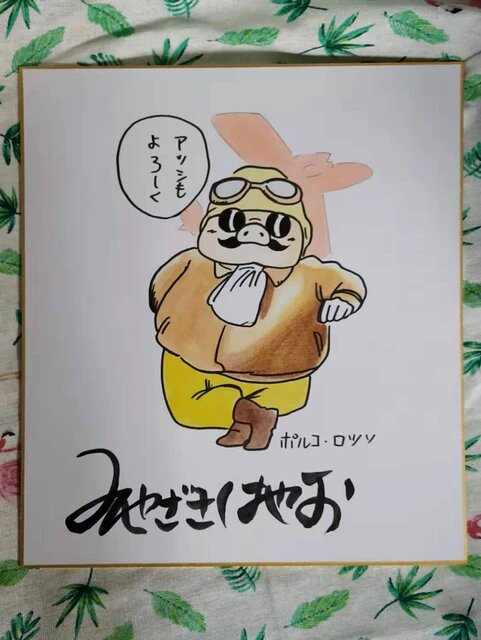 アツシも
よろしく
ポルコ・ロッソ
みやざきはやお